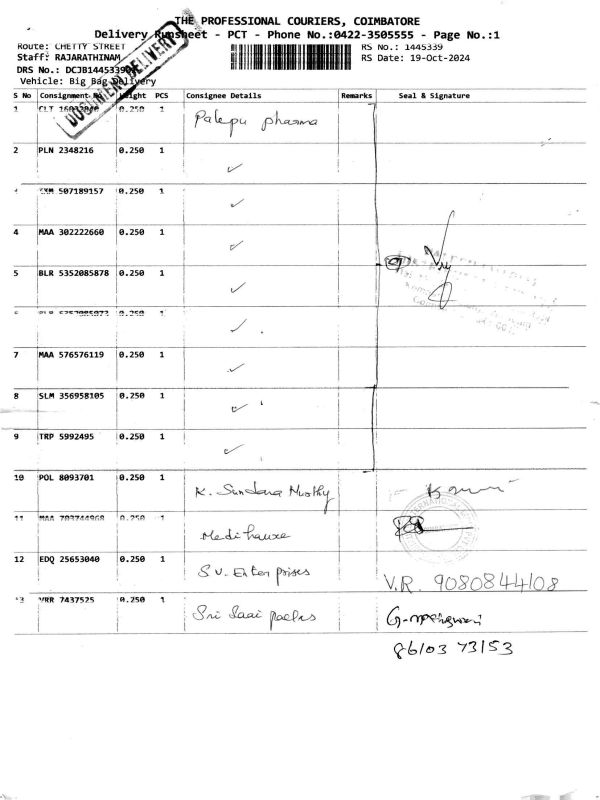 THE PROFESSIONAL COURIERS, COIMBATORE
Delivery Runsheet - PCT - Phone No.:0422-3505555 - Page No.:1
Route: CHETTY STREET RS No.: 1445339
Staff: RAJARATHINAM RS Date: 19-Oct-2024
DRS No.: DCJB1445339
Vehicle: Big Bag Delivery
DOCUMENT DELIVERY
S No Consignment No Weight PCS Consignee Details Remarks Seal & Signature
1 CLT 0.250 1 Palepu pharma
2 PLN 2348216 0.250 1 ✓
507189157 0.250 1 ✓
4 MAA 302222660 0.250 1 ✓
5 BLR 5352085878 0.250 1 ✓
0.250 1 ✓
7 MAA 576576119 0.250 1 ✓
8 SLM 356958105 0.250 1 ✓
9 TRP 5992495 0.250 1 ✓
10 POL 8093701 0.250 1 K. Sundara Murthy
11 MAA 703744968 0.250 1 Medi hauxe
12 EDQ 25653040 0.250 1 S.V. Enterprises V.R. 9080844108
13 VRR 7437525 0.250 1 Sri Saai packs
86103 73153